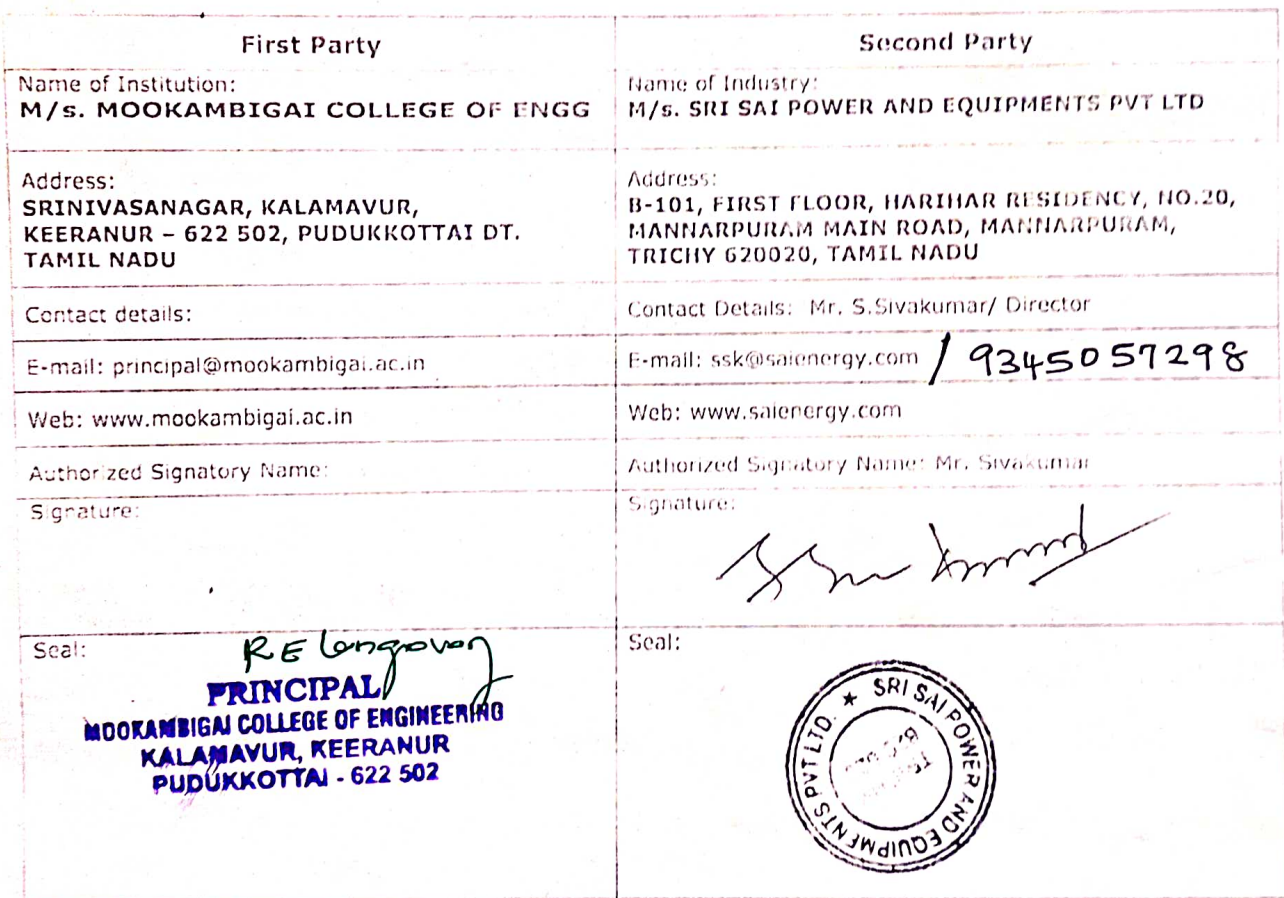 First Party
Second Party
Name of Institution:
M/s. MOOKAMBIGAI COLLEGE OF ENGG
Name of Industry:
M/s. SRI SAI POWER AND EQUIPMENTS PVT LTD
Address:
SRINIVASANAGAR, KALAMAVUR,
KEERANUR – 622 502, PUDUKKOTTAI DT.
TAMIL NADU
Address:
B-101, FIRST FLOOR, HARIHAR RESIDENCY, NO.20,
MANNARPURAM MAIN ROAD, MANNARPURAM,
TRICHY 620020, TAMIL NADU
Contact details:
Contact Details: Mr. S.Sivakumar/ Director
E-mail: principal@mookambigai.ac.in
E-mail: ssk@saienergy.com / 9345057298
Web: www.mookambigai.ac.in
Web: www.saienergy.com
Authorized Signatory Name:
Authorized Signatory Name: Mr. Sivakumar
Signature:
Signature:
Seal:
R Elangovan
PRINCIPAL
MOOKAMBIGAI COLLEGE OF ENGINEERING
KALAMAVUR, KEERANUR
PUDUKKOTTAI - 622 502
Seal:
★ SRI SAI POWER AND EQUIPMENTS PVT LTD.